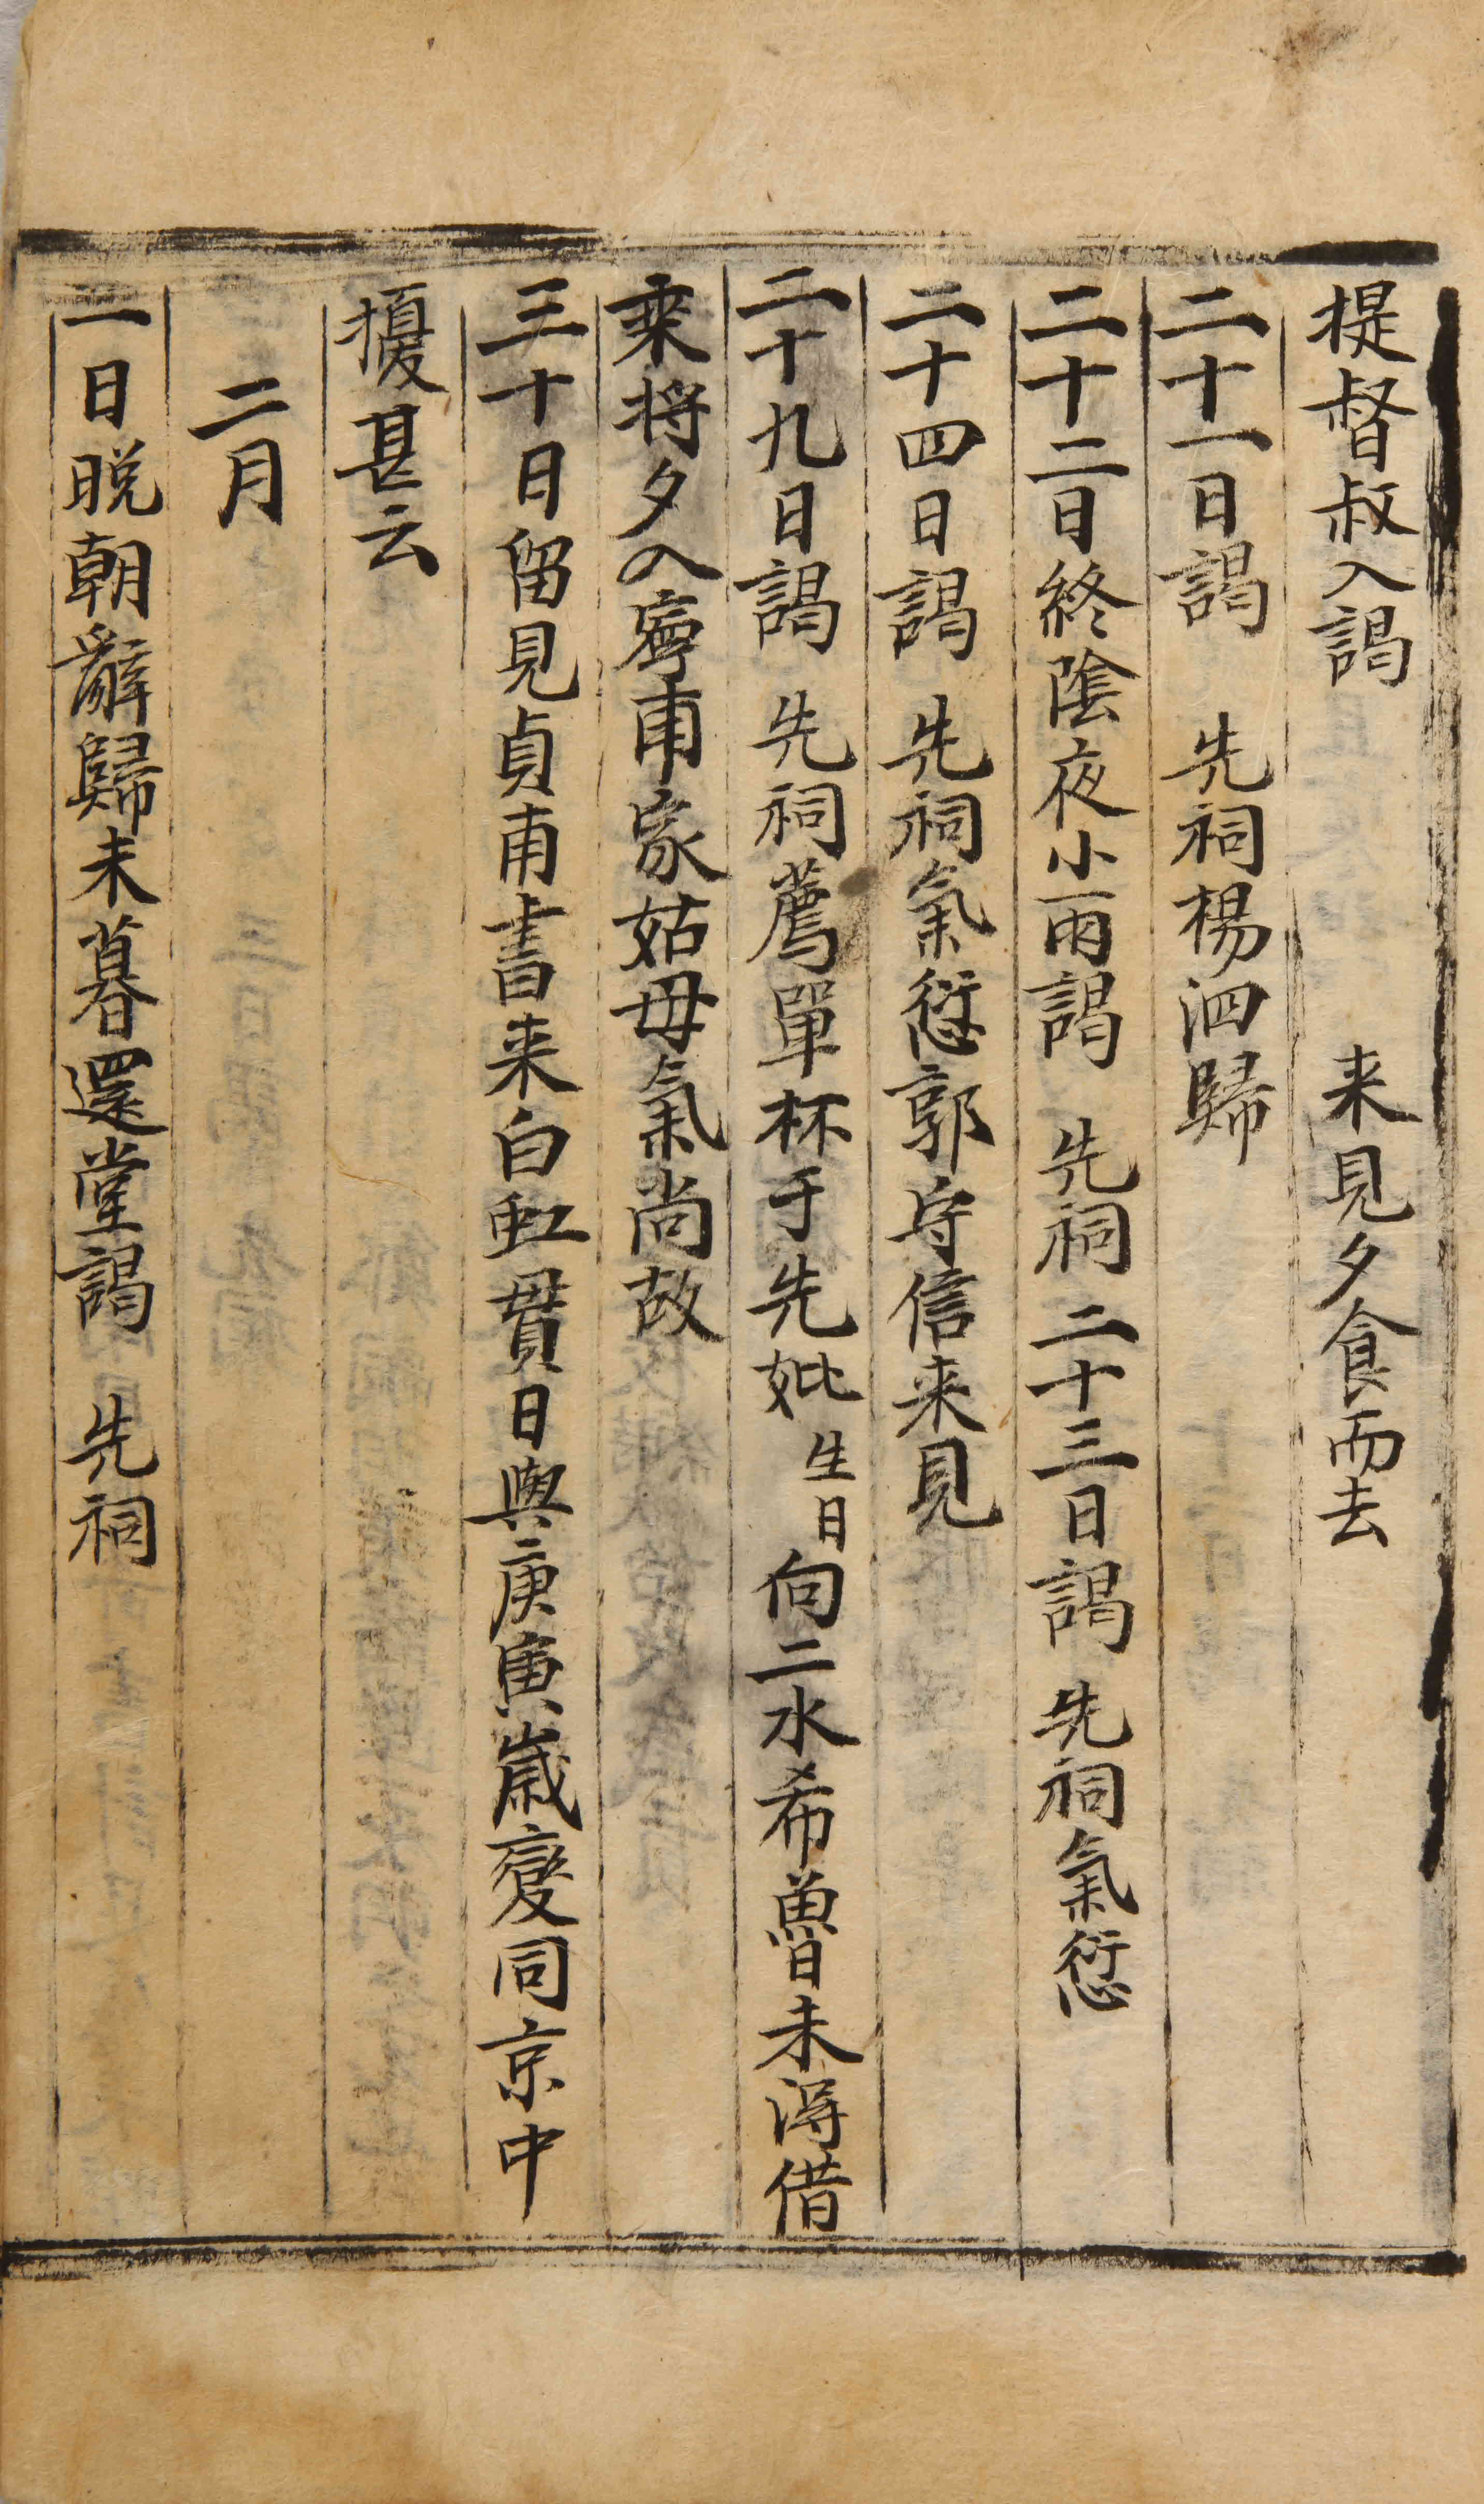 提督叔入謁　来見夕食而去
二十一日謁　先祠楊泗歸
二十二日終陰夜小雨謁　先祠二十三日謁　先祠氣愆
二十四日謁　先祠氣愆郭守信来見
二十九日謁　先祠薦單杯于先妣生日向二水希魯曰未得借
乘将夕入寧甫家姑母氣尚故
三十日留見貞甫書来白虹貫日與庚寅歲變同京中
擾甚云
二月
一日晩朝辭歸未暮還堂謁　先祠